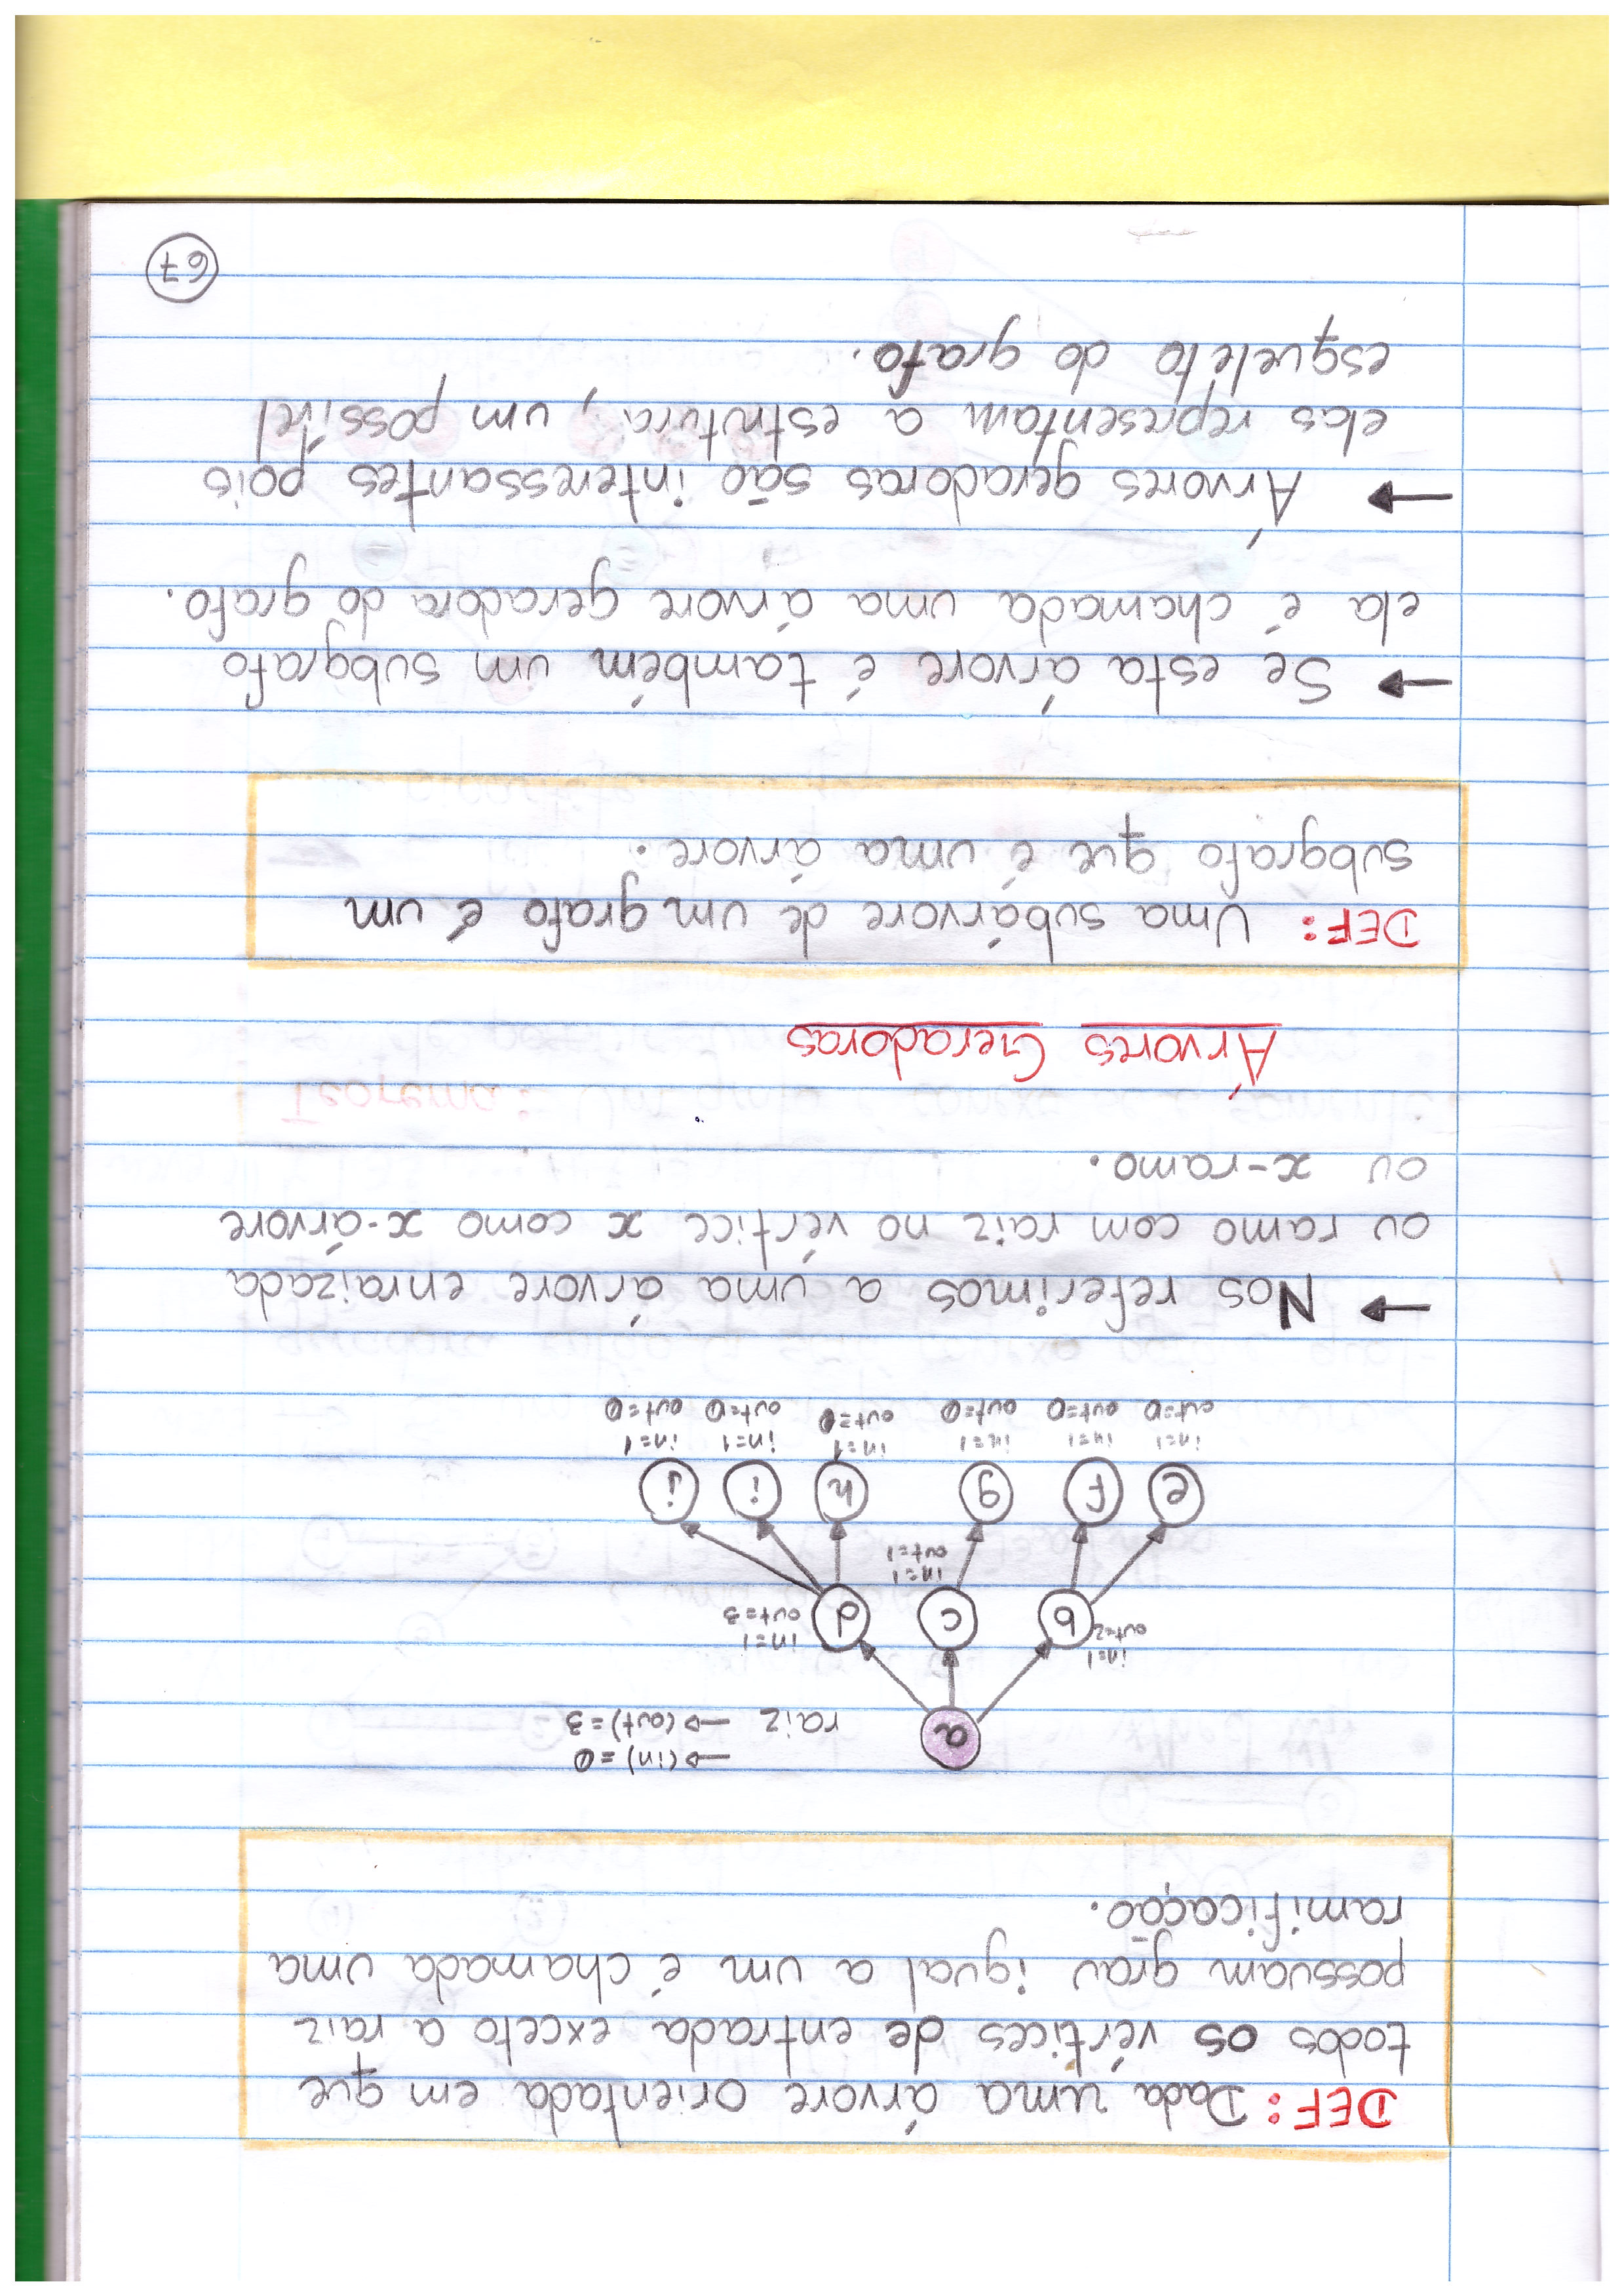 DEF: Dada uma árvore orientada em que
todos os vértices de entrada exceto a raiz
possuam grau igual a um é chamada uma
ramificação.
a
raiz →(in)=0
→(out)=3
in=1
out=2
b
c
d
in=1
out=3
in=1
out=1
e f g h i j
in=1 in=1 in=1 in=1 in=1 in=1
out=0 out=0 out=0 out=0 out=0 out=0
→ Nos referimos a uma árvore enraizada
ou ramo com raiz no vértice x como x-árvore
ou x-ramo.
Árvores Geradoras
DEF: Uma subárvore de um grafo é um
subgrafo que é uma árvore.
→ Se esta árvore é também um subgrafo
ela é chamada uma árvore geradora do grafo.
→ Árvores geradoras são interessantes pois
elas representam a estrutura, um possível
esqueleto do grafo.
67